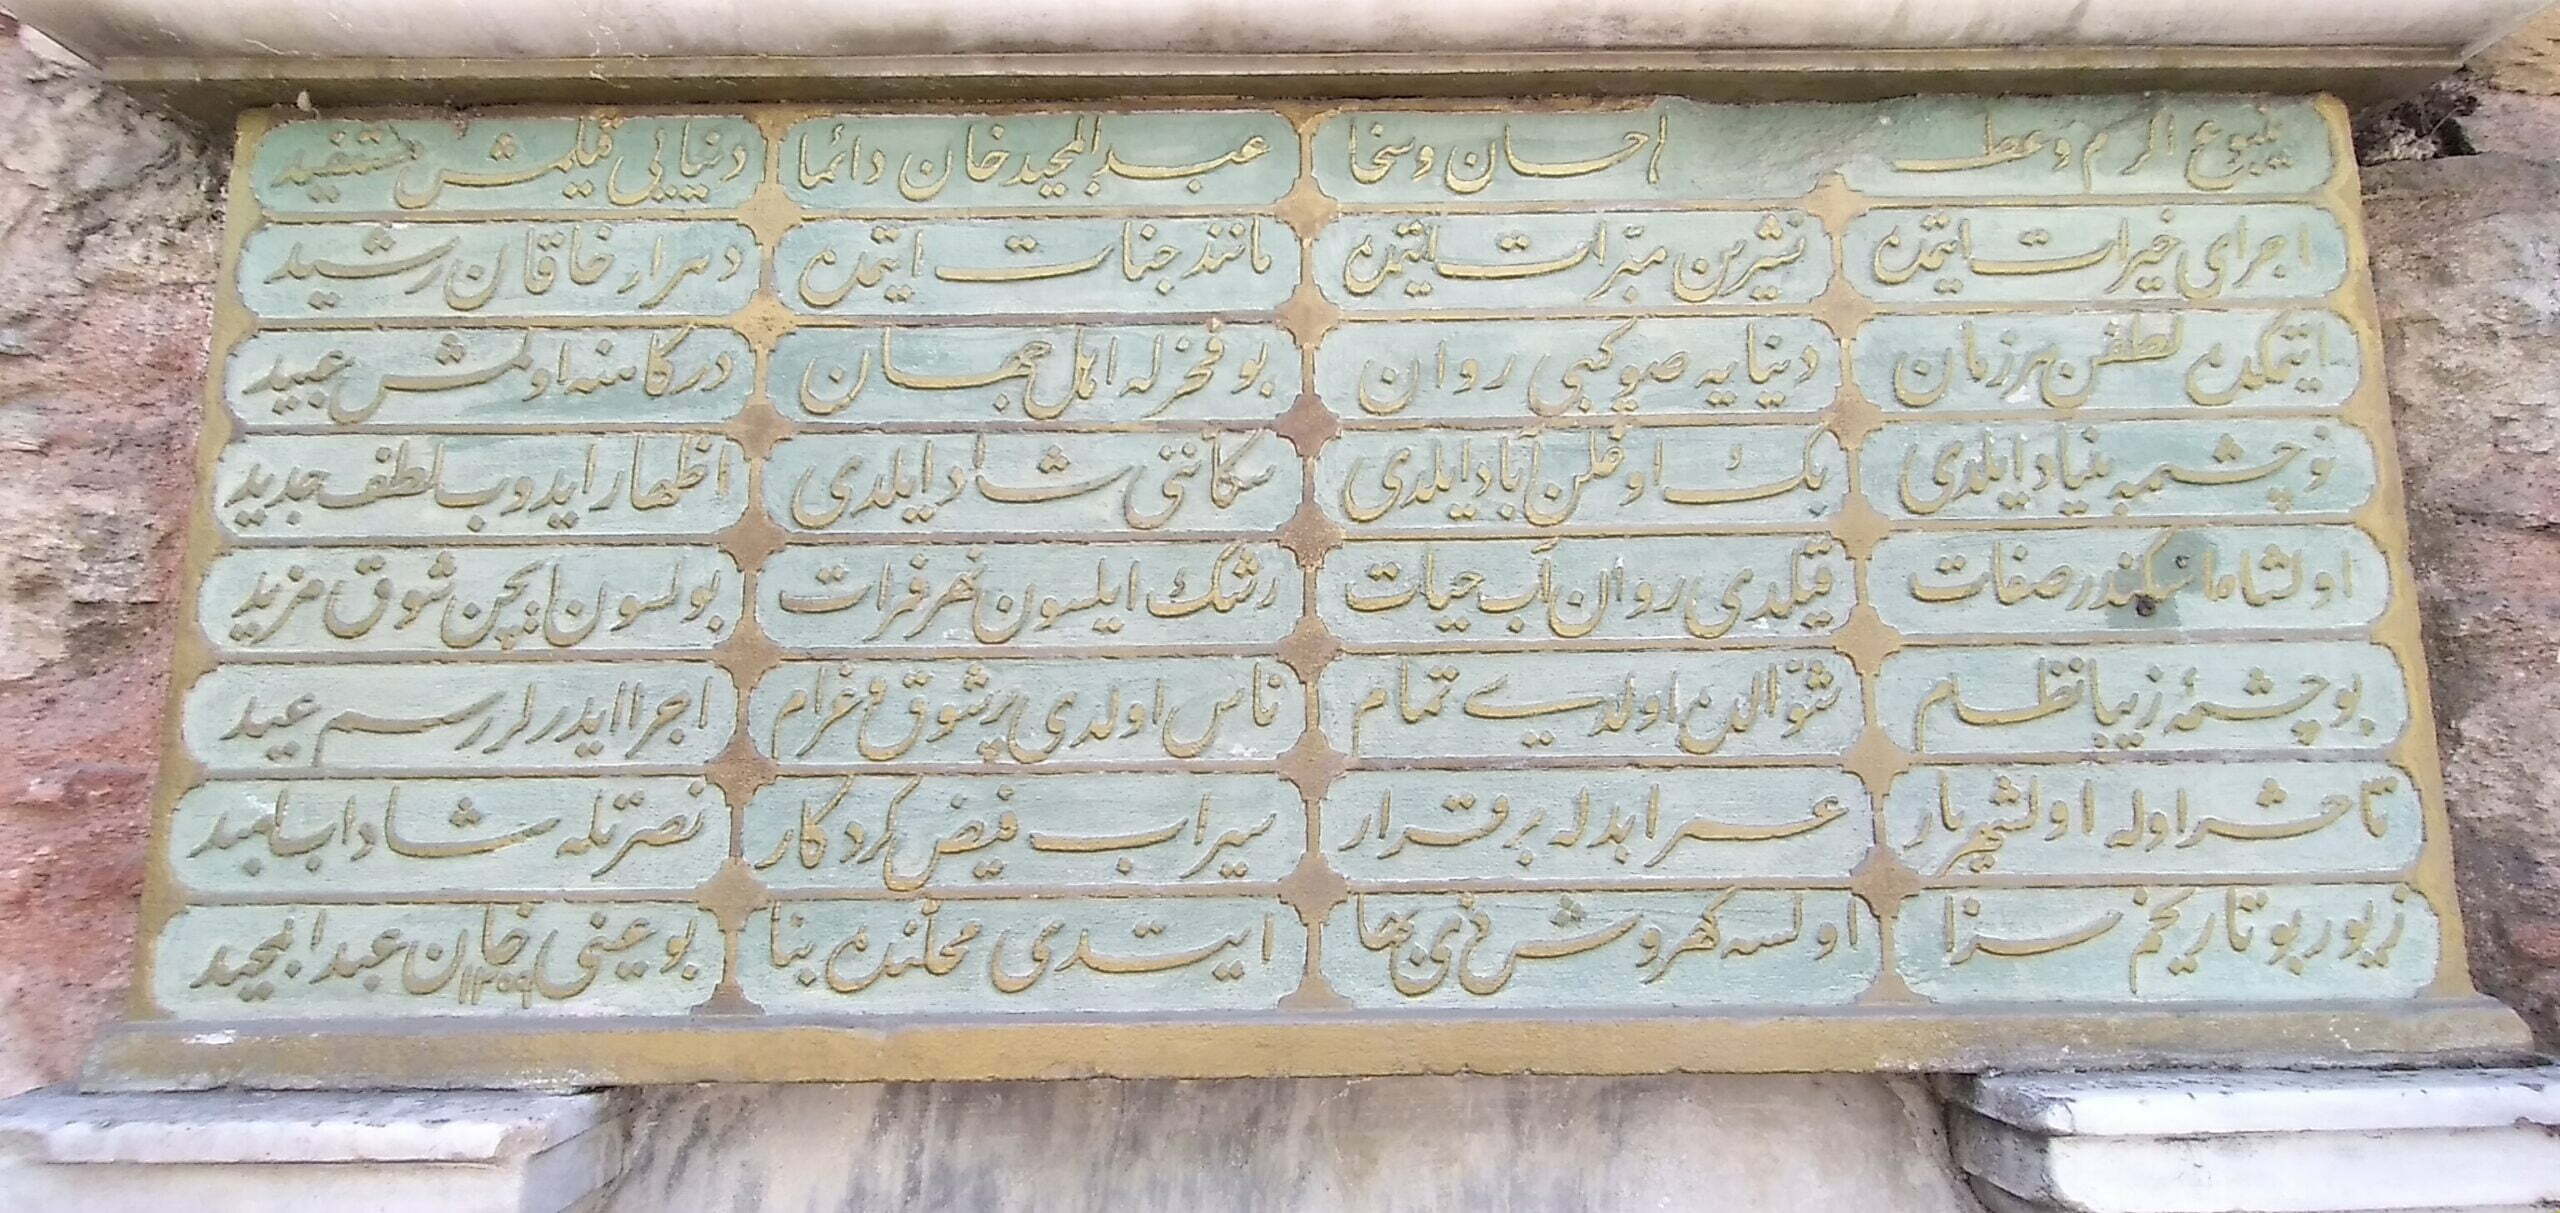 ينبوع الرم وعط احسان وسخا عبد المجيد خان دائما دنيايى قيلمش مستفيد
اجراى خيرات ايتمده نشرين مبرّات ايتمده مانند جنات ايتمده دهرار خاقان رشيد
ايتمكده لطفن هر زمان دنيايه صو كبى روان بو فخرله اهل جهان دركاهنه اولمش عبيد
نو چشمه بنياد ايلدى بك اوغلن آباد ايلدى سكاننى شاد ايلدى اظهار ايدوب لطف جديد
اولشاه اسكندر صفات قيلدى روان آب حيات رشك ايلسون نهر فرات بولسون ايچن شوق مزيد
بو چشمۀ زيبا نظام شوّالده اولدى تمام ناس اولدى پر شوق و غرام اجرا ايدرلر رسم عيد
تا حشر اوله اولشهريار عمر ابدله برقرار سيراب فيض كردكار نصرتله شاداب اميد
زيور بو تاريخم سزا اولسه كهروش ذى بها ايتدى محلنده بنا بو عينى خان عبد المجيد
١٢٥٦